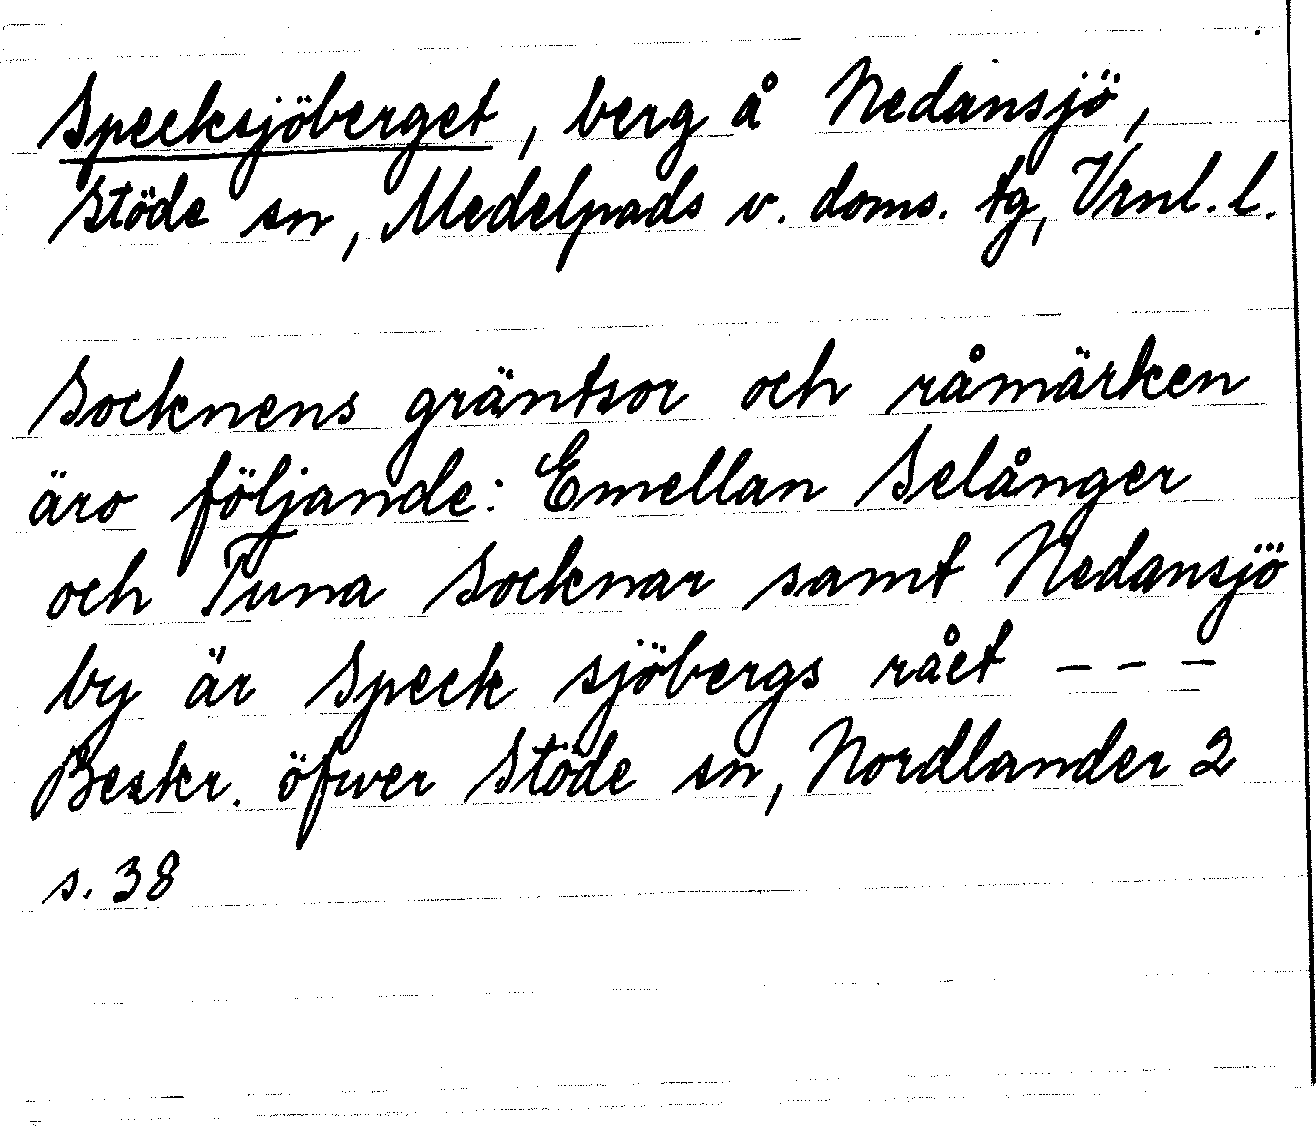 Specksjöberget, berg å Nedansjö,
Stöde sn, Medelpads v. doms. tg, Vrnl. l.
Socknens gräntsor och råmärken
äro följande: Emellan Selånger
och Tuna Socknar samt Nedansjö
by är Speck sjöbergs rået - - -
Beskr. öfwer Stöde sn, Nordlander 2
s. 38